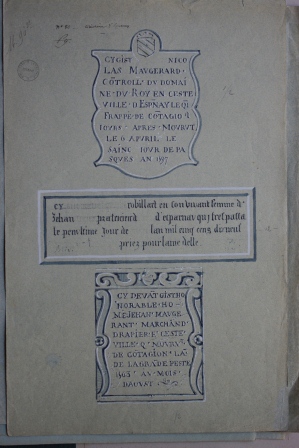 CY GIST NICO
LAS MAUGERARD
CŌTROLL' DU DOMAI
NE DU ROY EN CESTE
VILLE D'ESPNAY LEQ̄L
FRAPPE DE CŌTAGIŌ 9
IOURS APRES MOURUT
LE 6 APURIL LE
SAINC IOUR DE PA
SQUES AN 1597
CY robillart en son vivant femme d'
Jehan d'esparnay qui trespassa
le penultime jour de lan mil cinq cens dix neuf
priez pour lame delle
CY DEVĀT GIST HO
NORABLE HO
ME JEHAN MAUGE
RANT MARCHAND
DRAPIER Ē CESTE
VILLE Q' MOURUT
DE CŌTAGION LĀ
DE LA GRĀDE PESTE
1563 AU MOIS
DAOUST